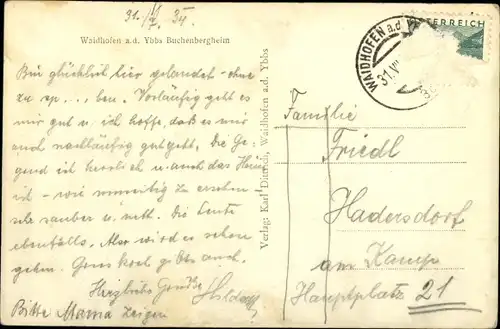 31./V. 34.
Waidhofen a.d. Ybbs Buchenbergheim
Bin glücklich hier gelandet – ohne
zu ... ben. Vorläufig geht es
mir gut u. ich hoffe, daß es mir
auch nachläufig gut geht. Die Ge-
gend ist herrlich u. auch das Heim
ist – wie unneitig zu ersehen
sehr sauber u. nett. Die Leute
ebenfalls. Also wird es schon
gehen. Grenzkogl gibts auch.
Herzliche Grüße
Bitte Mama zeigen
Verlag: Karl Dittrich, Waidhofen a.d. Ybbs
WAIDHOFEN a.d.
31.V
ÖSTERREICH
Familie
Friedl
Hadersdorf
am Kamp
Hauptplatz 21